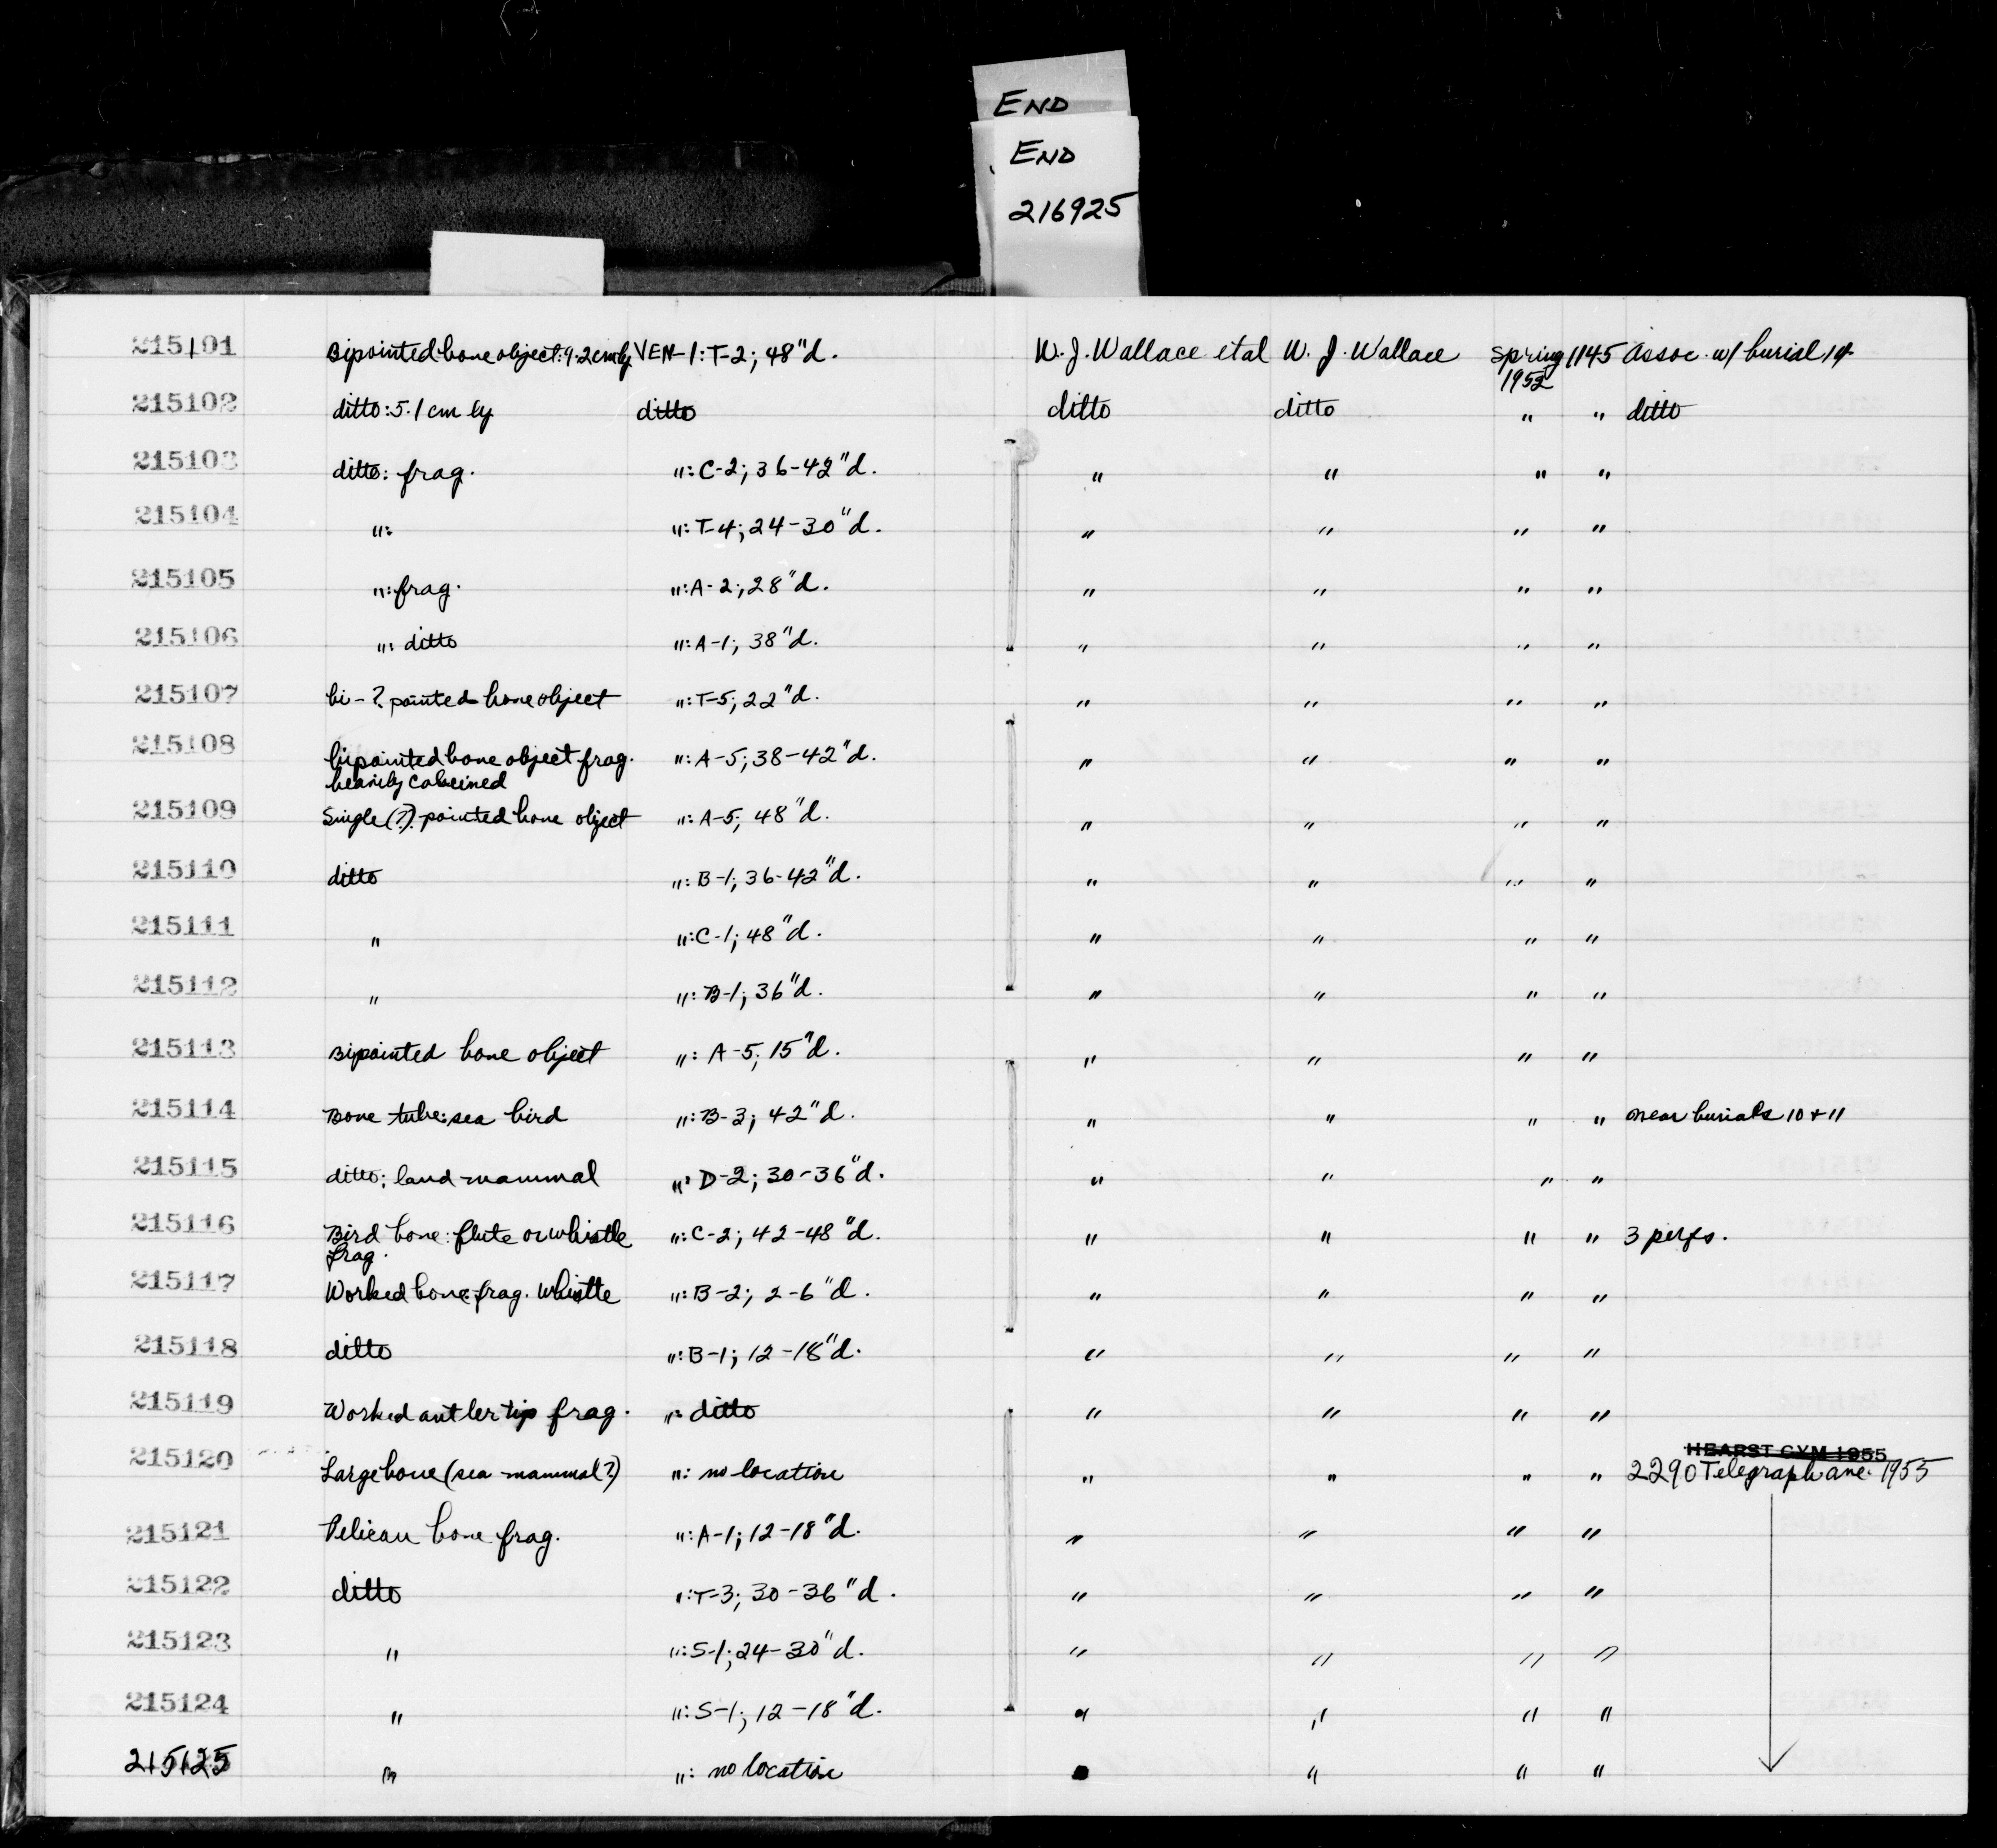 END
END
216925
215101 Bipointed bone object: 9.2 cm lg VEN-1: T-2; 48"d. W. J. Wallace et al W. J. Wallace Spring 1952 1145 Assoc. w/ burial 14
215102 ditto: 5.1 cm lg ditto ditto ditto " " ditto
215103 ditto: frag. ": C-2; 36-42"d. " " " "
215104 ": ": T-4; 24-30"d. " " " "
215105 ": frag. ": A-2; 28"d. " " " "
215106 ": ditto ": A-1; 38"d. " " " "
215107 bi-? pointed bone object ": T-5; 22"d. " " " "
215108 bipointed bone object frag. ": A-5; 38-42"d. " " " "
heavily calcined
215109 Single (?) pointed bone object ": A-5; 48"d. " " " "
215110 ditto ": B-1; 36-42"d. " " " "
215111 " ": C-1; 48"d. " " " "
215112 " ": B-1; 36"d. " " " "
215113 Bipointed bone object ": A-5; 15"d. " " " "
215114 Bone tube: sea bird ": B-3; 42"d. " " " " near burials 10 + 11
215115 ditto; land mammal ": D-2; 30-36"d. " " " "
215116 Bird bone: flute or whistle ": C-2; 42-48"d. " " " " 3 perfs.
frag.
215117 Worked bone: frag. whistle ": B-2; 2-6"d. " " " "
215118 ditto ": B-1; 12-18"d. " " " "
215119 Worked antler tip frag. ": ditto " " " "
HEARST GYM 1955
215120 Large bone (sea mammal?) ": no location " " " " 2290 Telegraph ave. 1955
215121 Pelican bone frag. ": A-1; 12-18"d. " " " "
215122 ditto ": T-3; 30-36"d. " " " "
215123 " ": S-1; 24-30"d. " " " "
215124 " ": S-1; 12-18"d. " " " "
215125 " ": no location " " " "